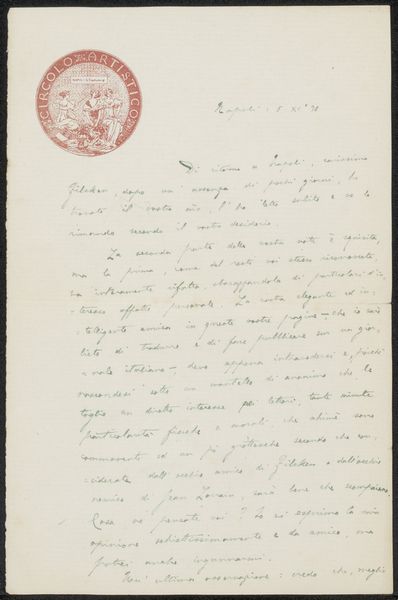 CIRCOLO ARTISTICO
Napoli: 5 XI° 98
Di ritorno a Napoli, carissimo
Zilcken, dopo un' assenza di pochi giorni, ho
trovato il vostro l' ho letto subito e ve lo
rimando secondo il vostro desiderio.
La seconda parte della vostra nota è squisita,
ma la prima, come del resto voi stesso riconoscete,
va interamente rifatta, di particolari d'in=
=teresse affatto personale. La vostra elegante ed in=
=telligente amica in queste vostre pagine — che io sarò
lieto di tradurre e di fare pubblicare su un gior=
=nale italiano —, deve appena intravedersi e, poiché
nascondesi sotto un mantello di anonimo che le
toglie un diretto interesse pei lettori, tante minute
particolarità fisiche e morali, che ahimè sono
commoventi od un po' grottesche secondo che con=
=siderate dall'occhio amico di Zilcken o dall'occhio
nemico di Jean Lorrain, sarà bene che scompaiano.
Cosa ne pensate voi? Io vi esprimo la mia
opinione schiettissimamente e da amico, ma
potrei anche ingannarmi.
Un' ultima osservazione: credo che, meglio